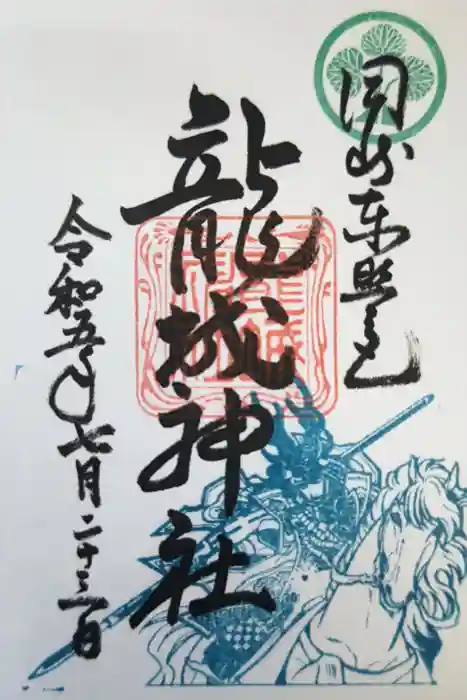 岡崎東照宮
龍城神社
令和五年七月二十三日